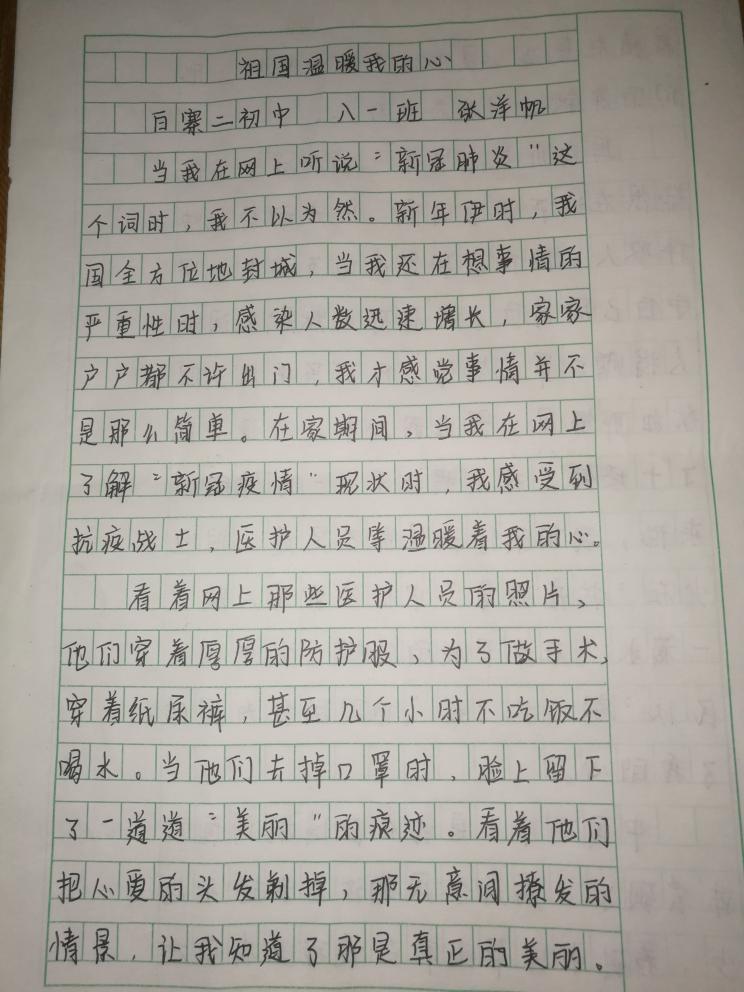 祖国温暖我的心
百寨二初中 八一班 张洋帆
当我在网上听说“新冠肺炎”这
个词时,我不以为然。新年伊时,我
国全方位地封城,当我还在想事情的
严重性时,感染人数迅速增长,家家
户户都不许出门,我才感觉事情并不
是那么简单。在家期间,当我在网上
了解“新冠疫情”现状时,我感受到
抗疫战士,医护人员等温暖着我的心。
看着网上那些医护人员的照片、
他们穿着厚厚的防护服、为了做手术,
穿着纸尿裤,甚至几个小时不吃饭不
喝水。当他们去掉口罩时、脸上留下
了一道道“美丽”的痕迹。看着他们
把心爱的头发剃掉,那无意间撩发的
情景,让我知道了那是真正的美丽。